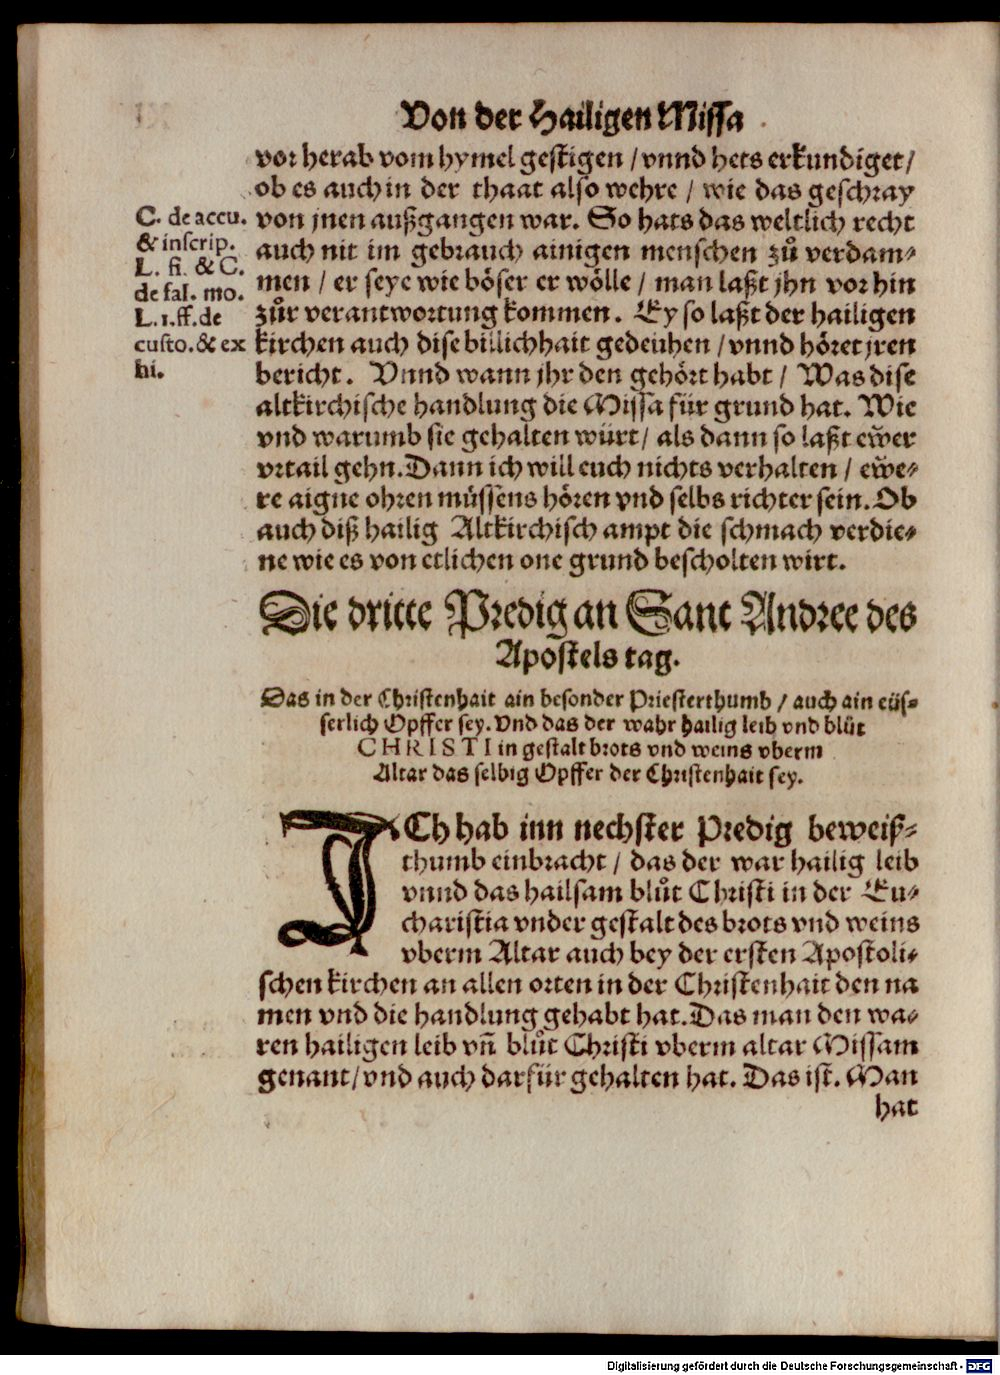 Von der Hailigen Missa
vor herab vom hymel gestigen / vnnd hets erkundiget /
ob es auch in der thaat also wehre / wie das geschray
von jnen außgangen war. So hats das weltlich recht
auch nit im gebrauch ainigen menschen zů verdam⸗
men / er seye wie böser er wölle / man laßt jhn vor hin
zůr verantwortung kommen. Ey so laßt der hailigen
kirchen auch dise billichhait gedeuhen / vnnd höret jren
bericht. Vnnd wann jhr den gehört habt / Was dise
altkirchische handlung die Missa für grund hat. Wie
vnd warumb sie gehalten würt / als dann so laßt ew̃er
vrtail gehn. Dann ich will euch nichts verhalten / ew̃e⸗
re aigne ohren müssens hören vnd selbs richter sein. Ob
auch diß hailig Altkirchisch ampt die schmach verdie⸗
ne wie es von etlichen one grund bescholten wirt.
C. de accu.
& inscrip.
L. fi. & C.
de fal. mo.
L. 1. ff. de
custo. & ex
hi.
Die dritte Predig an Sant Andree des
Apostels tag.
Das in der Christenhait ain besonder Priesterthumb / auch ain eüs⸗
serlich Opffer sey. Vnd das der wahr hailig leib vnd blůt
CHRISTI in gestalt brots vnd weins vberm
Altar das selbig Opffer der Christenhait sey.
ICh hab inn nechster Predig beweiß⸗
thumb einbracht / das der war hailig leib
vnnd das hailsam blůt Christi in der Eu⸗
charistia vnder gestalt des brots vnd weins
vberm Altar auch bey der ersten Apostoli⸗
schen kirchen an allen orten in der Christenhait den na
men vnd die handlung gehabt hat. Das man den wa⸗
ren hailigen leib vñ blůt Christi vberm altar Missam
genant / vnd auch darfür gehalten hat. Das ist. Man
hat
Digitalisierung gefördert durch die Deutsche Forschungsgemeinschaft - DFG